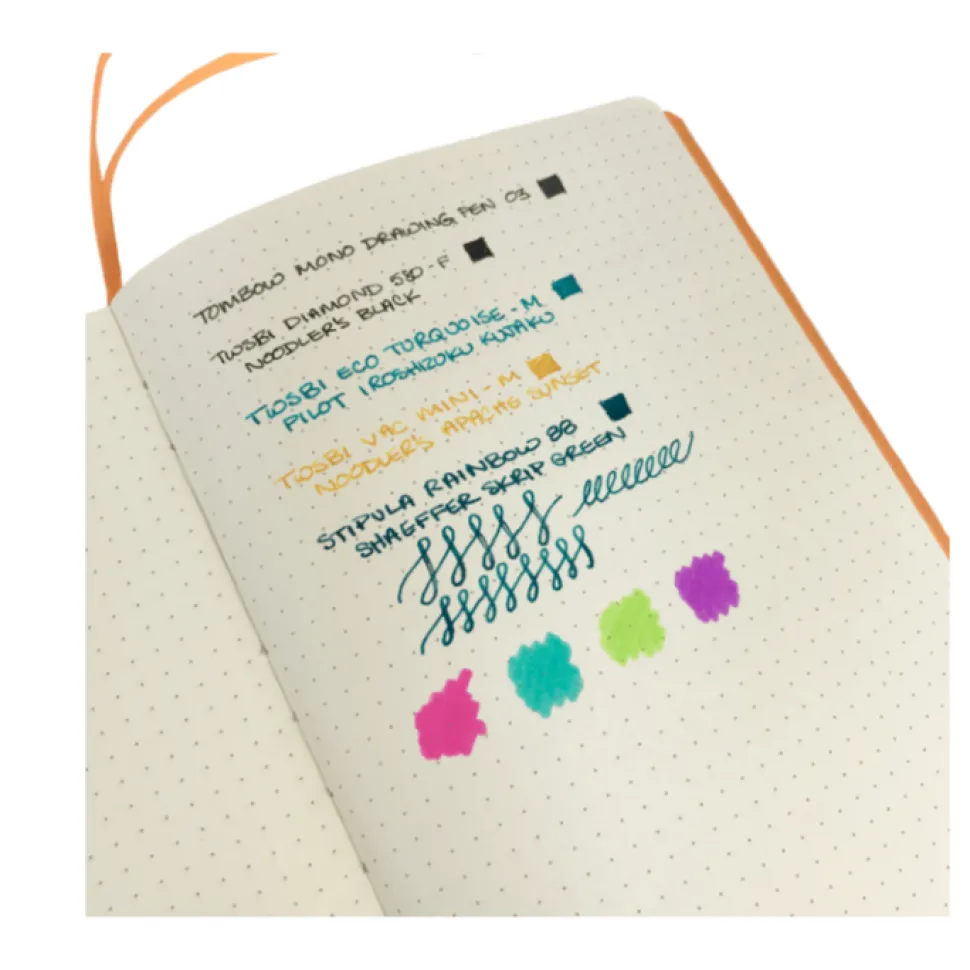 TOMBOW MONO DRAWING PEN 03
TWSBI DIAMOND 580 - F
NOODLER'S BLACK
TWSBI ECO TURQUOISE - M
PILOT IROSHIZUKU KUJAKU
TWSBI VAC MINI - M
NOODLER'S APACHE SUNSET
STIPULA RAINBOW 88
SHAEFFER SKRIP GREEN